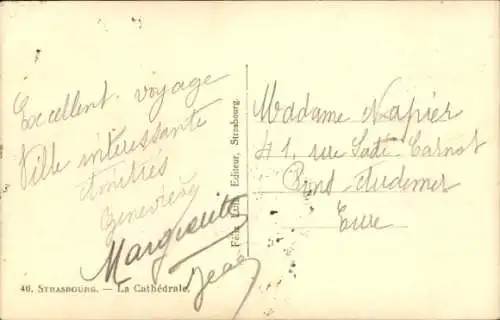 Excellent voyage
Ville intéressante
Amitiés
Geneviève
Marguerite
Jean
46. STRASBOURG. — La Cathédrale.
Félix Luib, Editeur, Strasbourg.
Madame Napier
41, rue Sadi-Carnot
Pont-Audemer
Eure